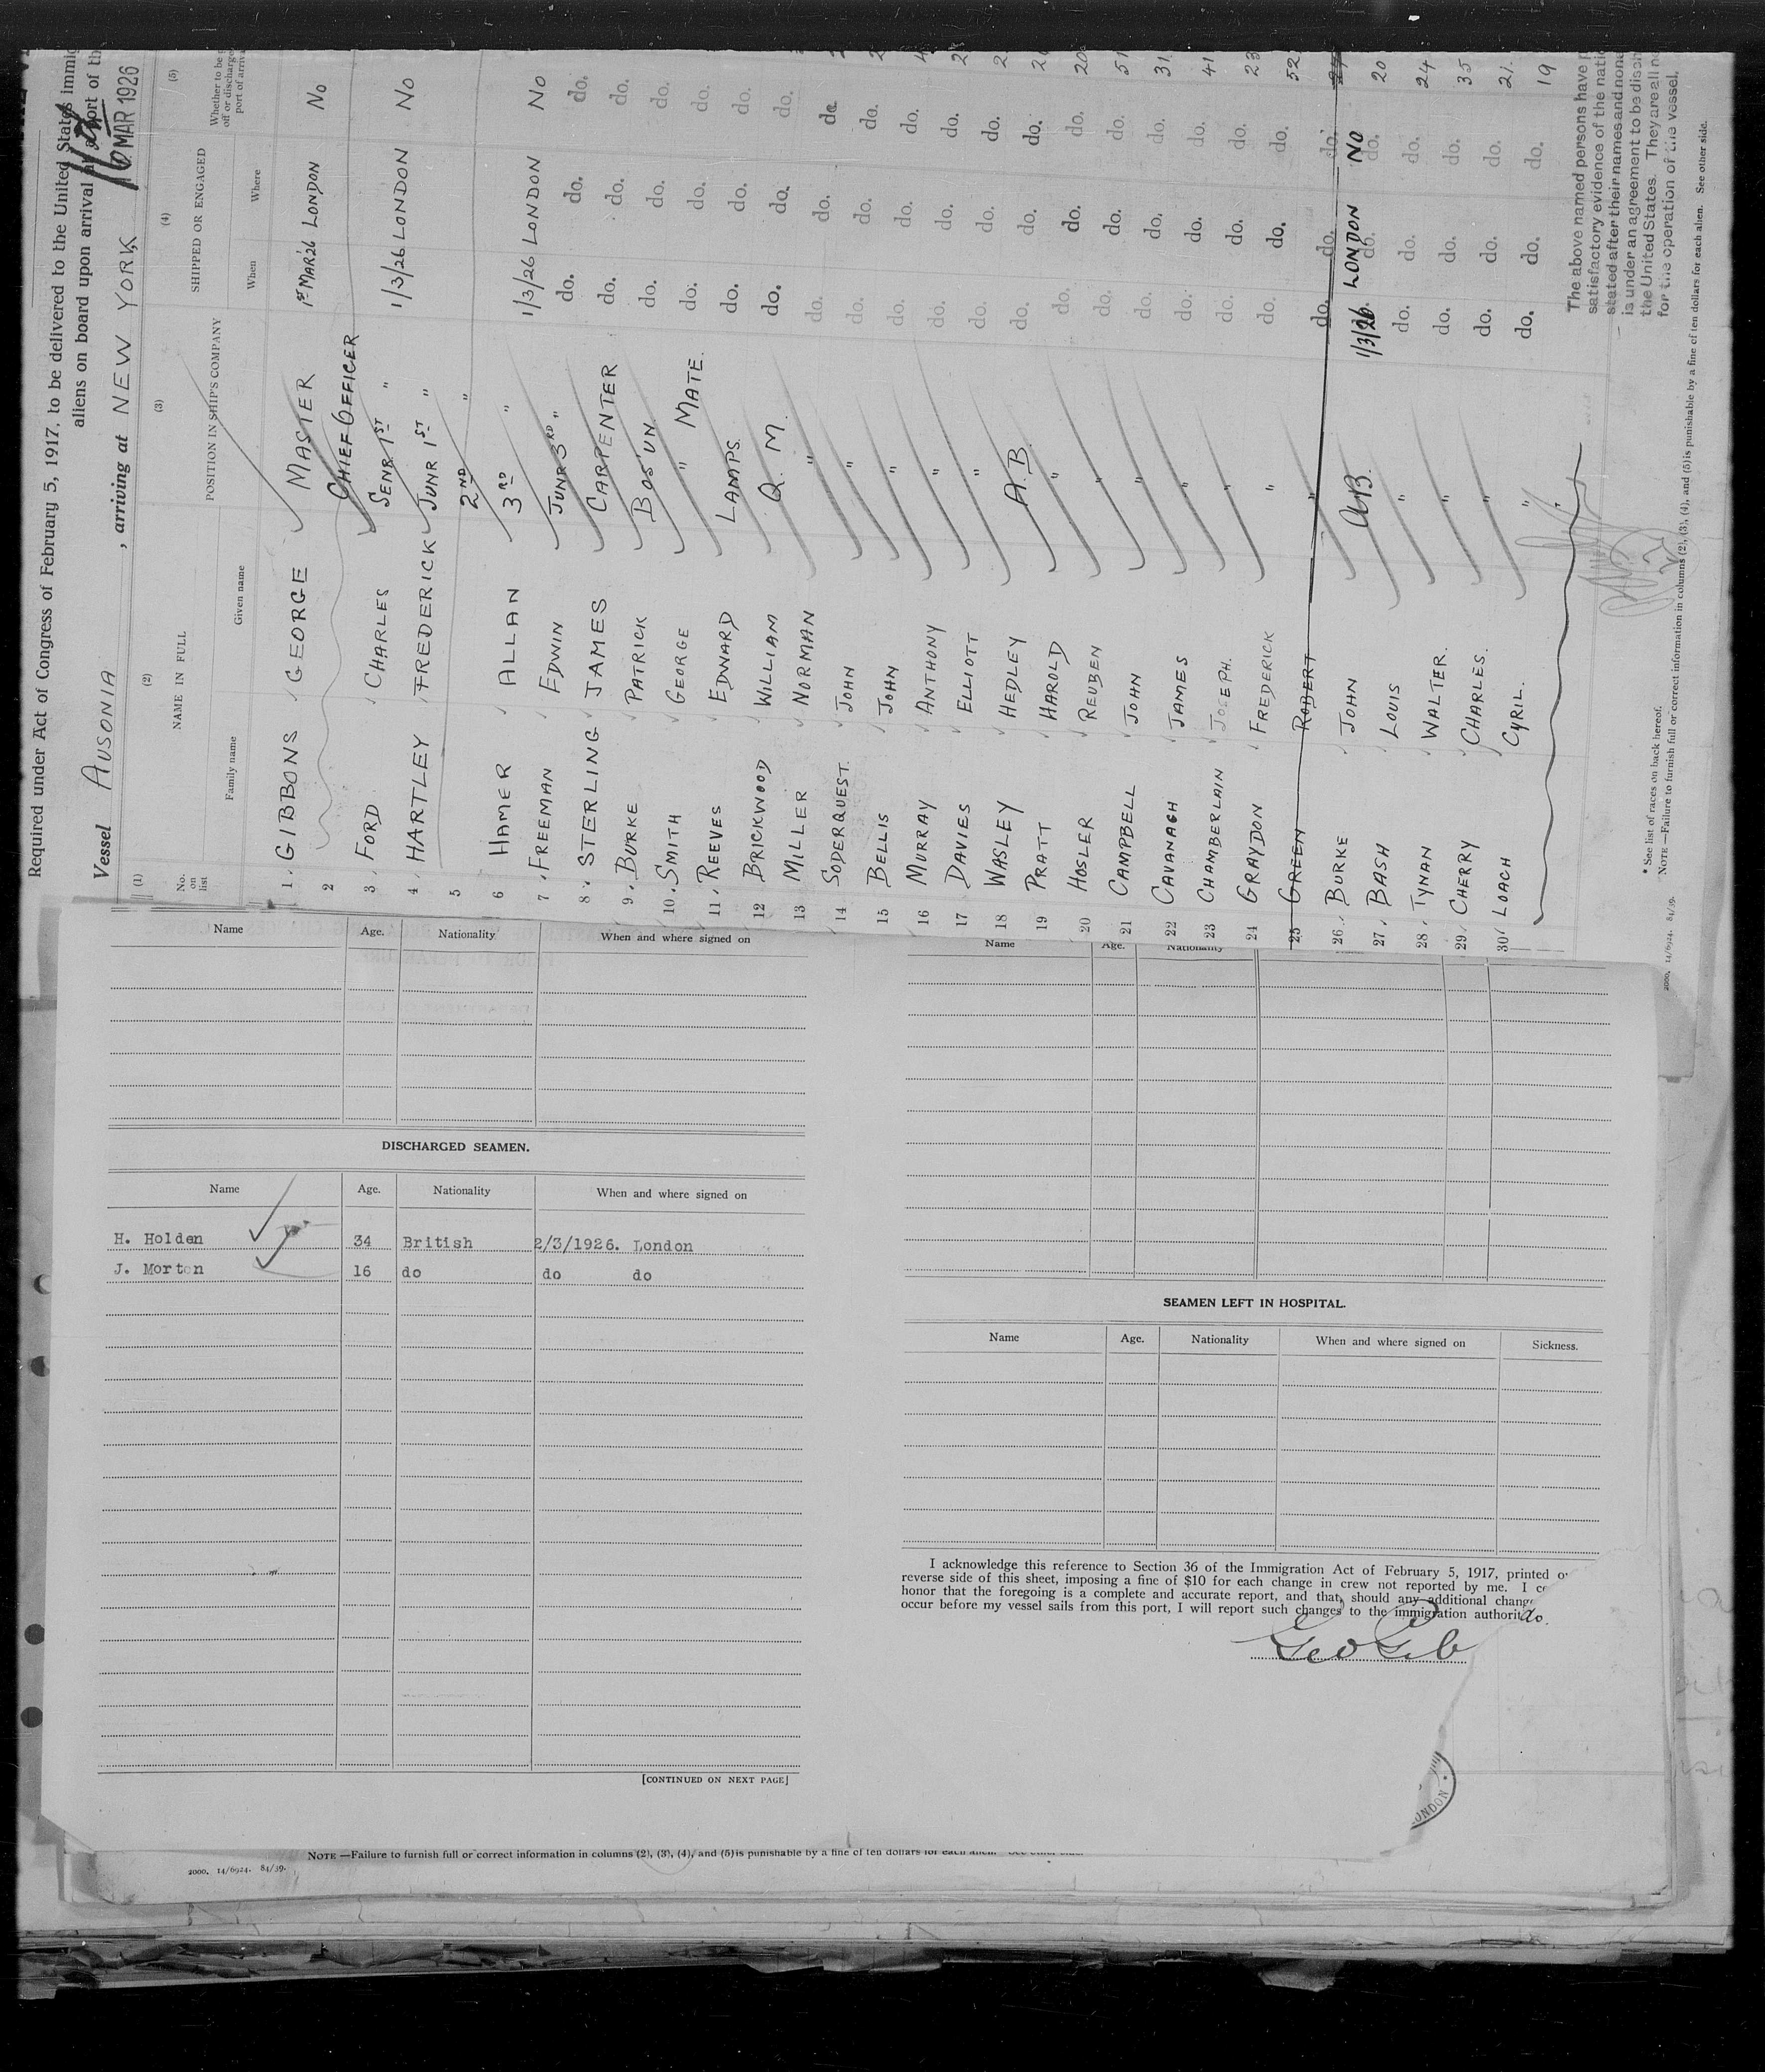 Required under Act of Congress of February 5, 1917, to be delivered to the United States immig
aliens on board upon arrival at a port of th
Vessel AUSONIA , arriving at NEW YORK 16 MAR 1926
(1) (2) (3) (4) (5)
No. on list
NAME IN FULL
Family name Given name
POSITION IN SHIP'S COMPANY
SHIPPED OR ENGAGED
When Where
Whether to be
off or discharg
port of arriva
1 GIBBONS GEORGE MASTER 1st MAR'26 LONDON No
2 CHIEF OFFICER
3 FORD CHARLES SENR 1ST " 1/3/26 LONDON No
4 HARTLEY FREDERICK JUNR 1ST "
5 2ND "
6 HAMER ALLAN 3RD " 1/3/26 LONDON No
7 FREEMAN EDWIN JUNR 3RD " do. do. do.
8 STERLING JAMES CARPENTER do. do. do.
9 BURKE PATRICK BOS'UN do. do. do.
10 SMITH GEORGE " MATE. do. do. do.
11 REEVES EDWARD LAMPS. do. do. do.
12 BRICKWOOD WILLIAM Q.M. do. do. do.
13 MILLER NORMAN " do. do. do.
14 SODERQUEST JOHN " do. do. do.
15 BELLIS JOHN " do. do. do.
16 MURRAY ANTHONY " do. do. do.
17 DAVIES ELLIOTT " do. do. do.
18 WASLEY HEDLEY A.B. do. do. do.
19 PRATT HAROLD " do. do. do.
20 HOSLER REUBEN " do. do. do. 20
21 CAMPBELL JOHN " do. do. do. 51
22 CAVANAGH JAMES " do. do. do. 31
23 CHAMBERLAIN JOSEPH. " do. do. do. 41
24 GRAYDON FREDERICK " do. do. do. 23
25 GREEN ROBERT " do. do. do. 52
26 BURKE JOHN AB. 1/3/26 LONDON NO
27 BASH LOUIS " do. do. do. 20
28 TYNAN WALTER. " do. do. do. 24
29 CHERRY CHARLES. " do. do. do. 35
30 LOACH CYRIL. " do. do. do. 21
19
The above named persons have p
satisfactory evidence of the natio
stated after their names and none
is under an agreement to be disch
the United States. They are all ne
for the operation of the vessel,
* See list of races on back hereof.
NOTE —Failure to furnish full or correct information in columns (2), (3), (4), and (5) is punishable by a fine of ten dollars for each alien. See other side.
2000. 14/6924. 84/39.
Name Age. Nationality When and where signed on
Name Age. Nationality
DISCHARGED SEAMEN.
Name Age. Nationality When and where signed on
H. Holden 34 British 2/3/1926. London
J. Morton 16 do do do
[CONTINUED ON NEXT PAGE]
SEAMEN LEFT IN HOSPITAL.
Name Age. Nationality When and where signed on Sickness.
I acknowledge this reference to Section 36 of the Immigration Act of February 5, 1917, printed o
reverse side of this sheet, imposing a fine of $10 for each change in crew not reported by me. I ce
honor that the foregoing is a complete and accurate report, and that, should any additional change
occur before my vessel sails from this port, I will report such changes to the immigration authorit
do.
Geo Gib
ONDON
NOTE —Failure to furnish full or correct information in columns (2), (3), (4), and (5) is punishable by a fine of ten dollars for each alien.
2000. 14/6924. 84/39.